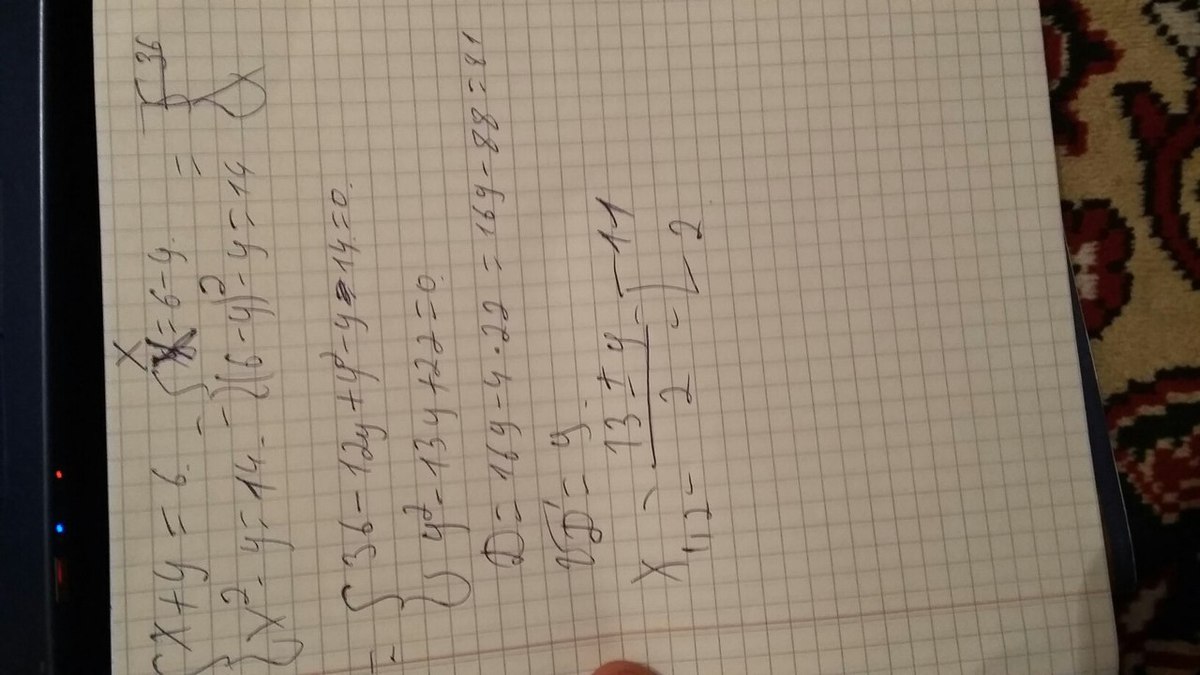 { x + y = 6. - { x = 6 - y. = { 36
{ x² - y = 14. - { (6 - y)² - y = 14 { x
= { 36 - 12y + y² - y - 14 = 0.
{ y² - 13y + 22 = 0.
D = 169 - 4 · 22 = 169 - 88 = 81
√D = 9.
x₁,₂ = (13 ± 9) / 2 = [ 11
2